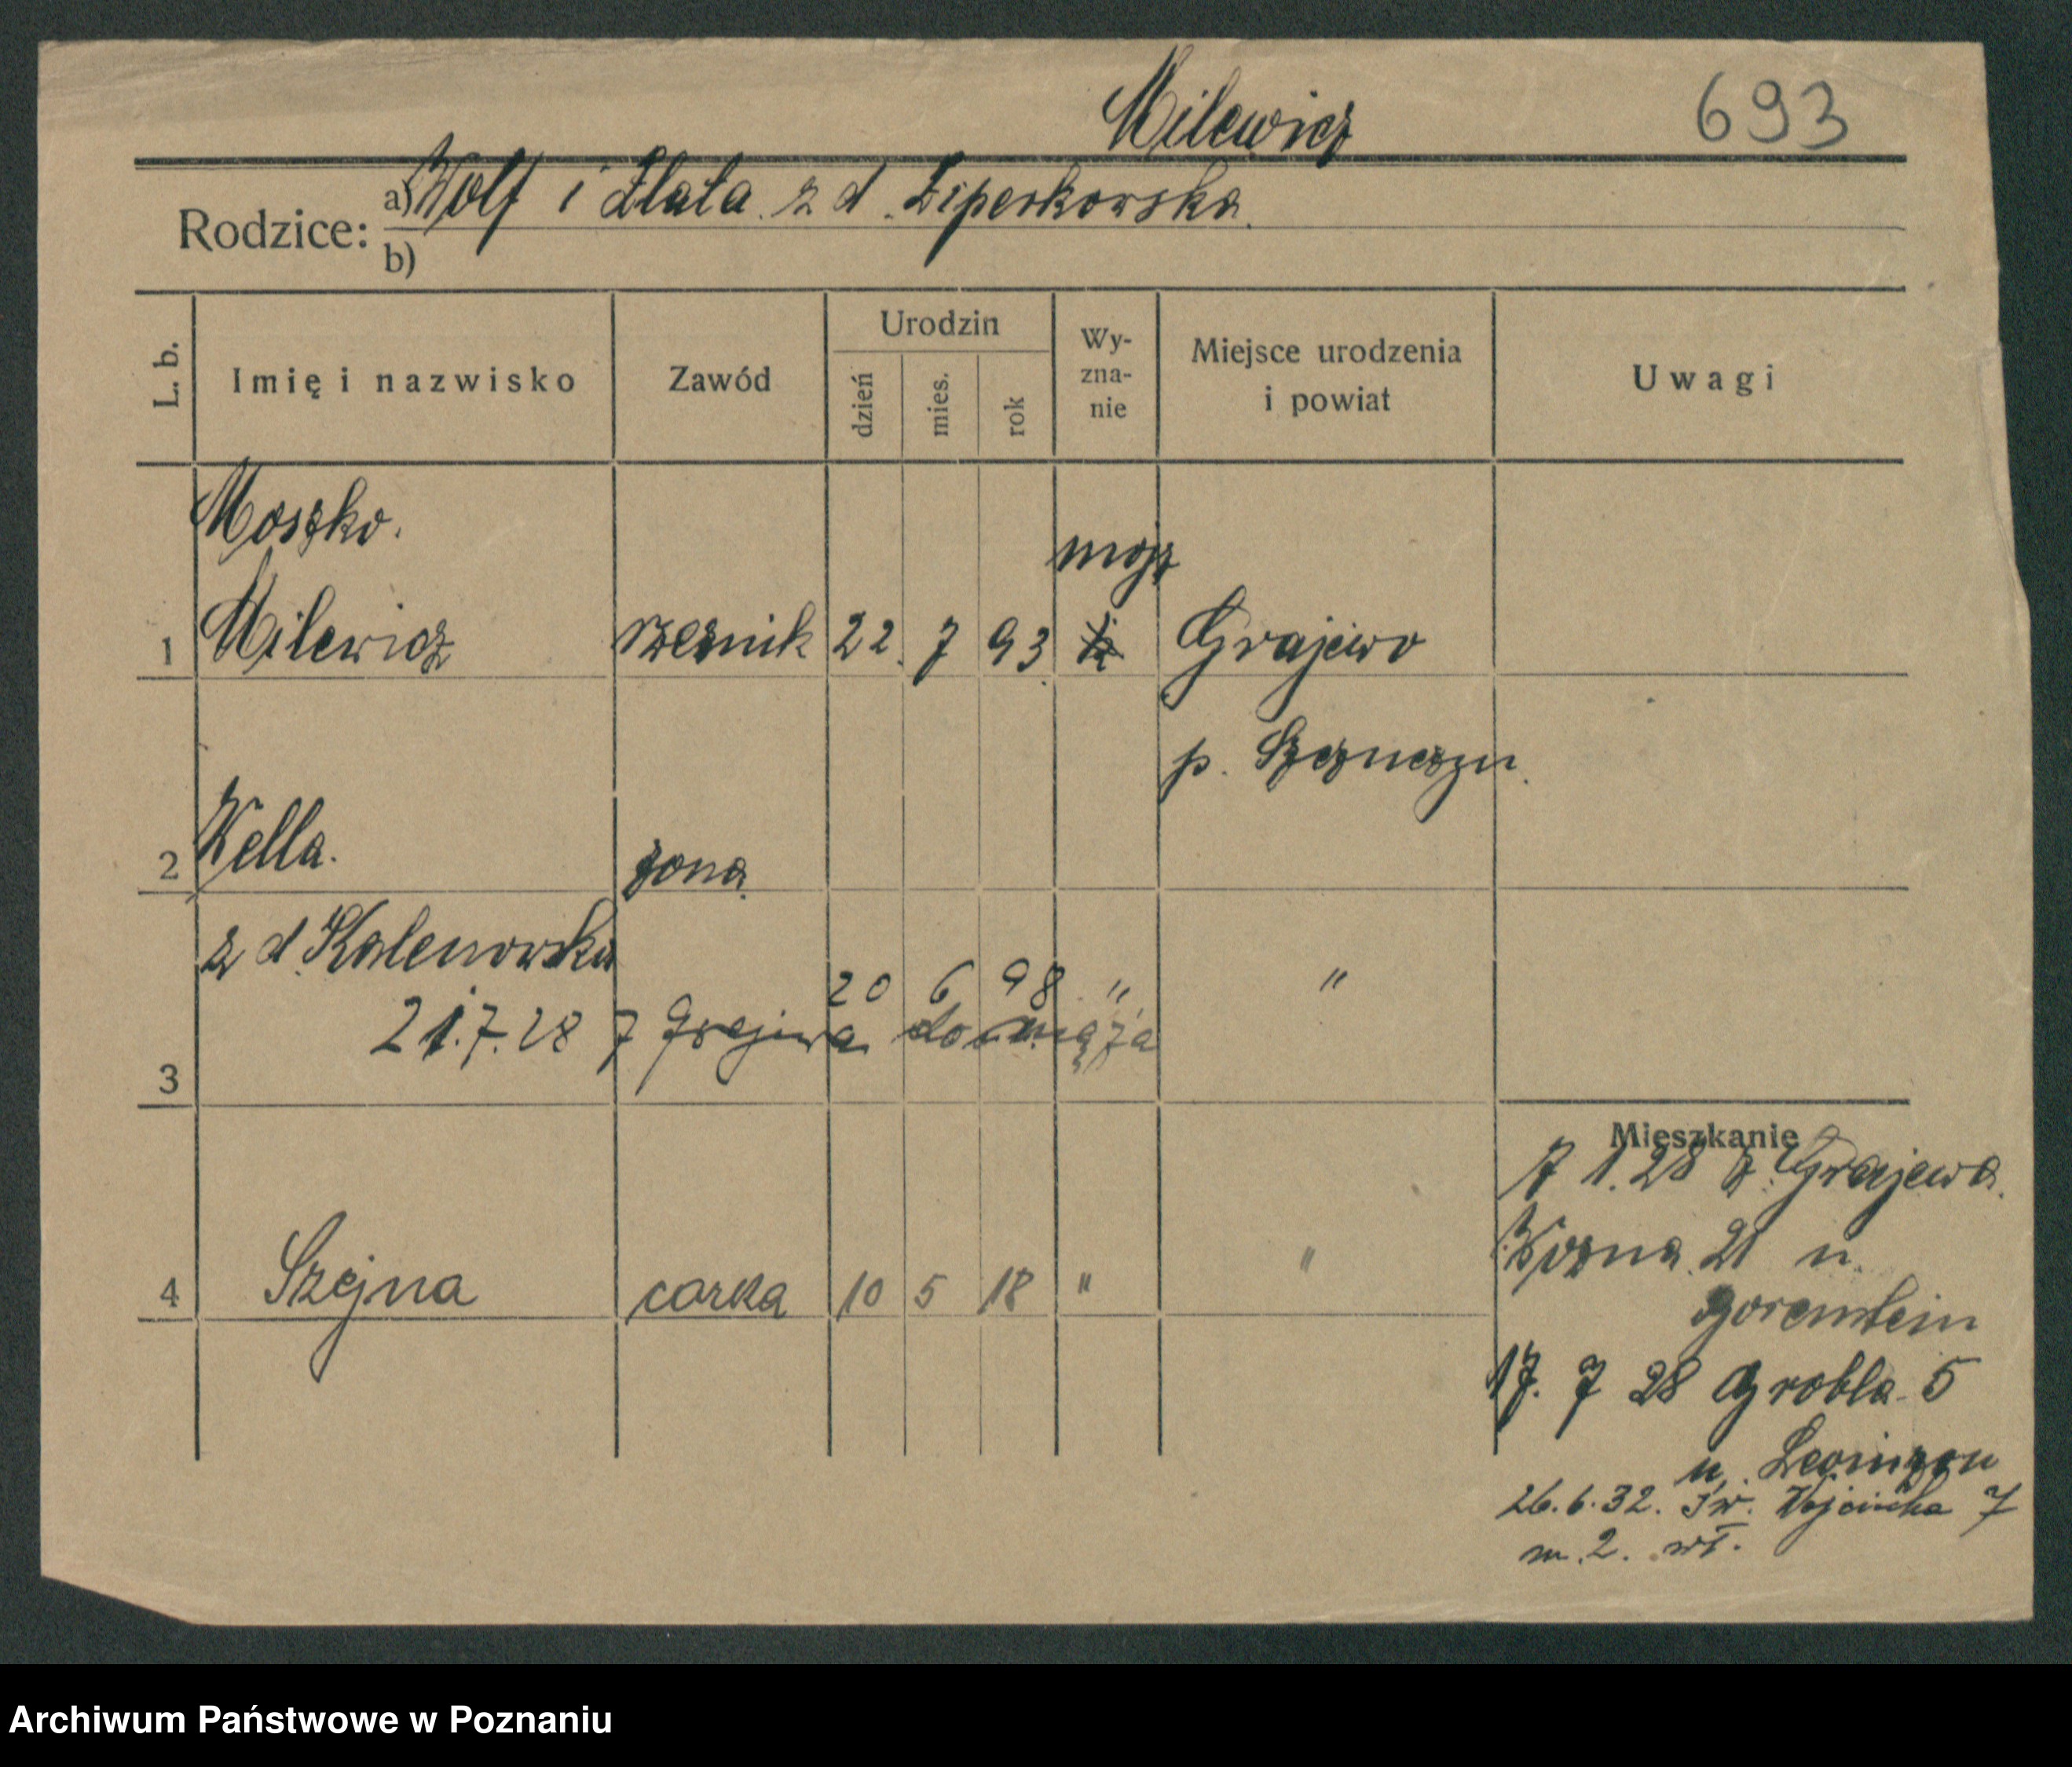 Milewicz
693
Rodzice: a) Wolf i Zlata z d. Liperkowska.
b)
L. b.
Imię i nazwisko
Zawód
Urodzin
dzień
mies.
rok
Wy-
zna-
nie
Miejsce urodzenia
i powiat
Uwagi
Moszko.
mojż
1 Milewicz rzeznik 22. 7 93. Grajewo
p. Szczuczyn.
2 Kella. zona.
z d. Kalenowska
20 6 98 " "
21.7.28 z Grajewa do męża
3
4 Szejna corka 10 5 18 " "
Mieszkanie
17 1. 28 z Grajewa.
Wozna 21 u.
17. 7 28 Grobla 5
u.
26.6.32. św. Wojciecha 7
m. 2. wł.
Archiwum Państwowe w Poznaniu